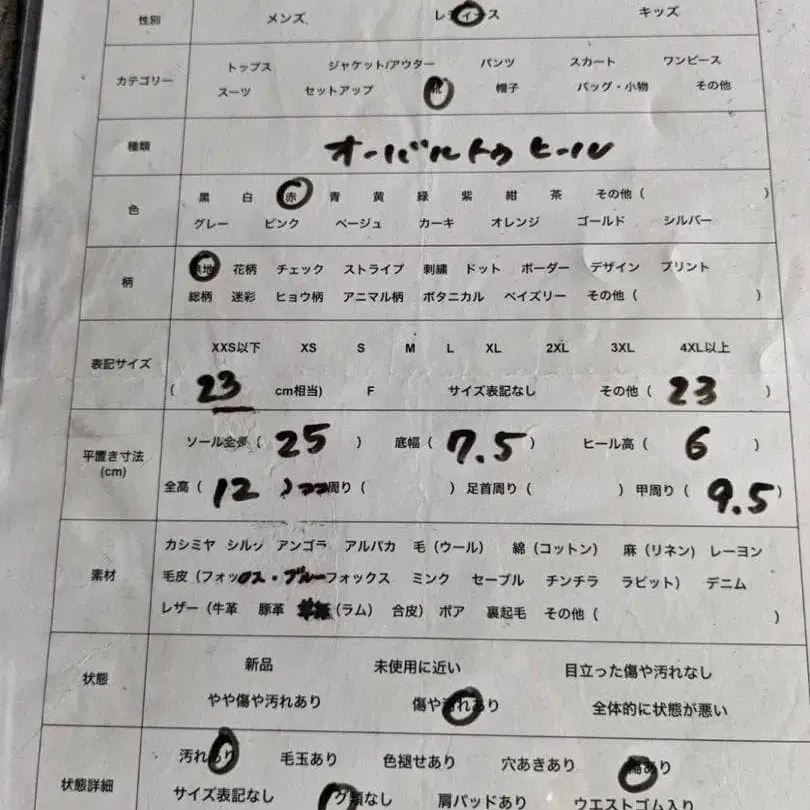 性別 メンズ レディース キッズ
カテゴリー トップス ジャケット/アウター パンツ スカート ワンピース
スーツ セットアップ 靴 帽子 バッグ・小物 その他
種類 オーバルトゥ ヒール
色 黒 白 赤 青 黄 緑 紫 紺 茶 その他 ( )
グレー ピンク ベージュ カーキ オレンジ ゴールド シルバー
柄 無地 花柄 チェック ストライプ 刺繍 ドット ボーダー デザイン プリント
総柄 迷彩 ヒョウ柄 アニマル柄 ボタニカル ペイズリー その他 ( )
表記サイズ XXS以下 XS S M L XL 2XL 3XL 4XL以上
( 23 cm相当) F サイズ表記なし その他 ( 23 )
平置き寸法 (cm) ソール全長 ( 25 ) 底幅 ( 7.5 ) ヒール高 ( 6 )
全高 ( 12 ) 周り ( ) 足首周り ( ) 甲周り ( 9.5 )
素材 カシミヤ シルク アンゴラ アルパカ 毛 (ウール) 綿 (コットン) 麻 (リネン) レーヨン
毛皮 (フォックス・ブルーフォックス ミンク セーブル チンチラ ラビット) デニム
レザー (牛革 豚革 (ラム) 合皮) ボア 裏起毛 その他 ( )
状態 新品 未使用に近い 目立った傷や汚れなし
やや傷や汚れあり 傷や汚れあり 全体的に状態が悪い
状態詳細 汚れあり 毛玉あり 色褪せあり 穴あきあり 傷あり
サイズ表記なし なし 肩パッドあり ウエストゴム入り